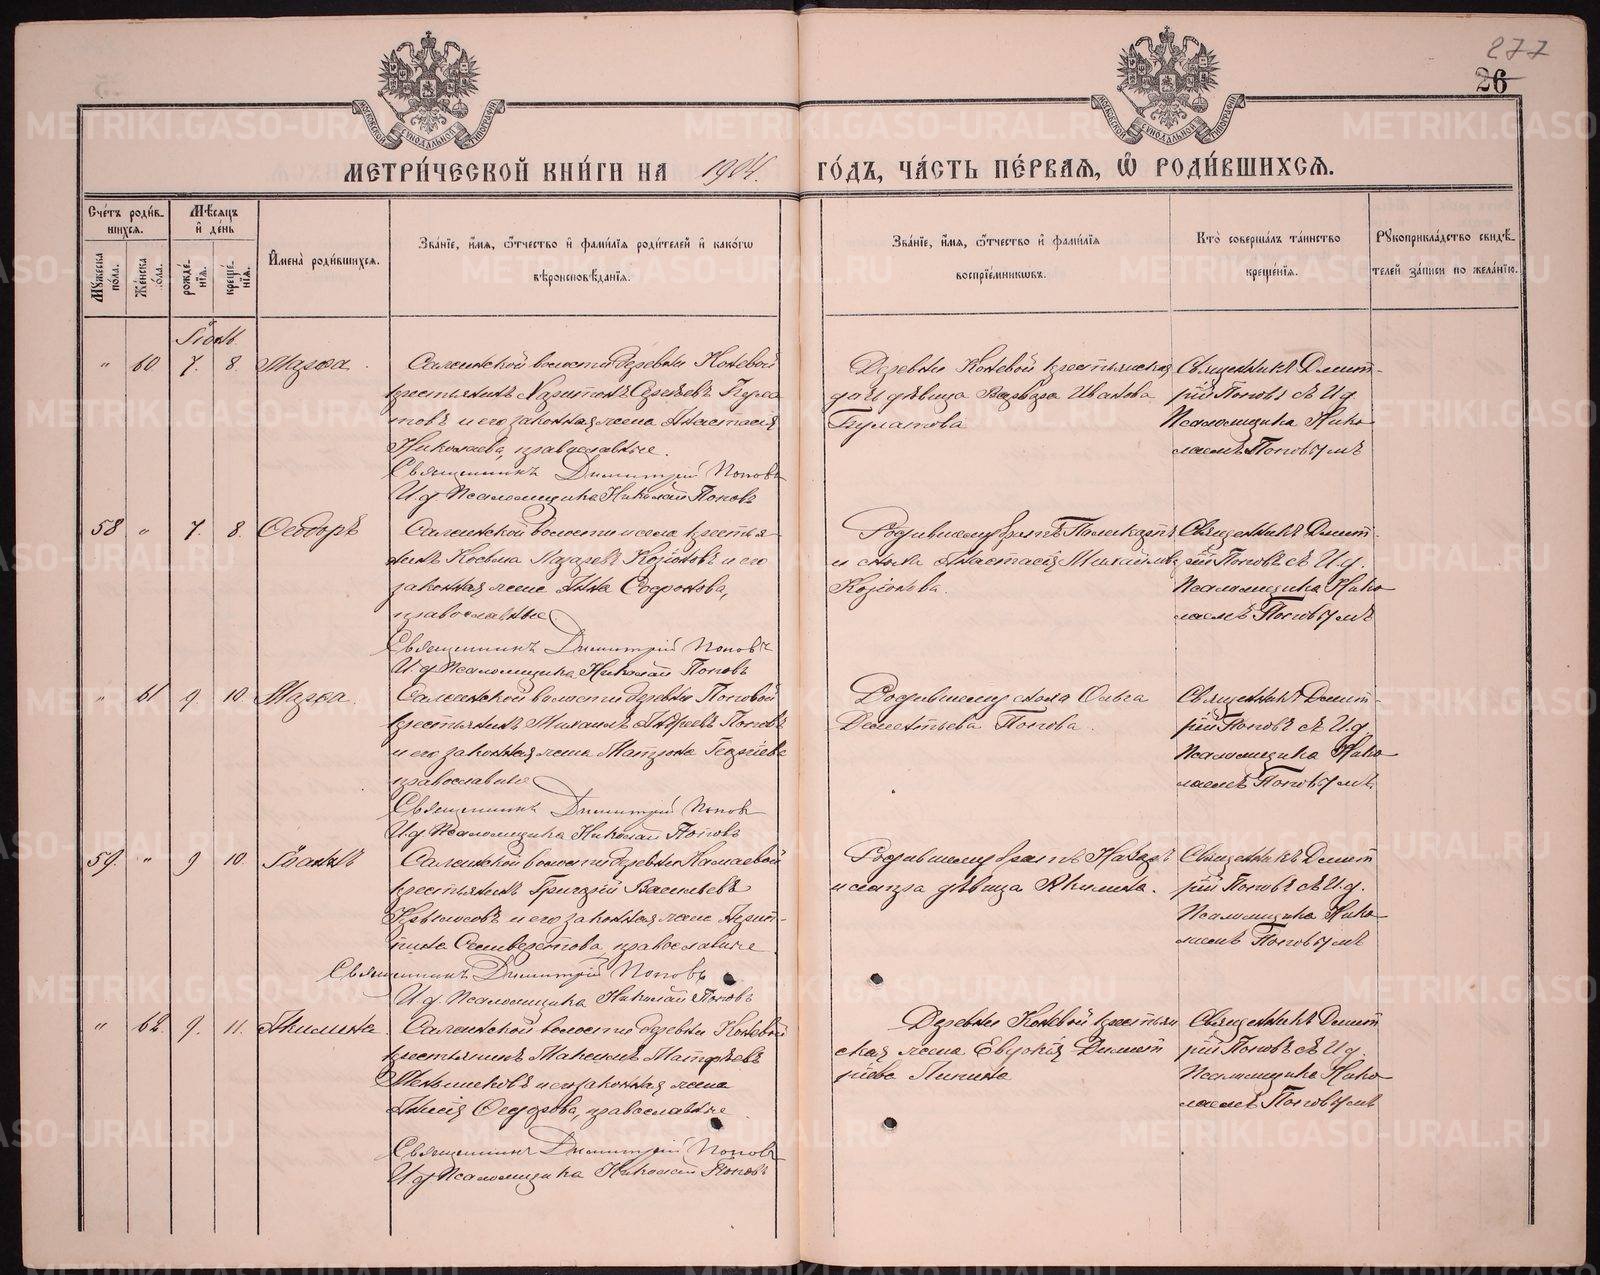 277
26
МОСКОВСКОЙ СѴНОДАЛЬНОЙ ТИПОГРАФІИ
МОСКОВСКОЙ СѴНОДАЛЬНОЙ ТИПОГРАФІИ
МЕТРИ́ЧЕСКОЙ КНИ́ГИ НА 1904. ГО́ДЪ, ЧА́СТЬ ПЕ́РВАЯ, Ѡ҆ РОДИ́ВШИХСЯ.
Сче́тъ роди́в-
шихся.
Мѣ́сяцъ
и҆ де́нь
И҆мена̀ роди́вшихся.
Зва́нїе, и҆́мя, ѻ҆́тчество и҆ фами́лїя роди́телей и҆ како́гѡ
вѣроисповѣ́данїя.
Зва́нїе, и҆́мя, ѻ҆́тчество и҆ фами́лїя
воспрїе́мникѡвъ.
Кто̀ соверша́лъ та́инство
креще́нїя.
Рꙋкоприкла́дство свидѣ́-
телей за́писи по жела́нїю.
Мꙋ́жеска
по́ла.
Же́нска
по́ла.
рожде́-
нїя.
креще́-
нїя.
Іюнь
" 60 7. 8. Марѳа.
волости деревни Коневой
крестьянинъ Харитонъ Сергѣевъ Була
товъ и его законная жена Анастасія
Николаева, православные.
Священникъ Димитрій Поповъ
И.д. Псаломщика Николай Поповъ
Деревни Коневой крестьянская
дочь дѣвица Варвара Иванова
Булатова
Священникъ Димит-
рій Поповъ съ И.д.
Псаломщика Нико
лаемъ Поповымъ
58 " 7. 8. Ѳеодоръ
волости и села крестья-
нинъ Косьма Лазаревъ и его
законная жена Анна Софонова,
православные.
Священникъ Димитрій Поповъ
И.д. Псаломщика Николай Поповъ
Родившемуся братъ Поликарпъ
и Анастасія Михайлова
Священникъ Димит-
рій Поповъ съ И.д.
Псаломщика Нико
лаемъ Поповымъ
" 61 9. 10. Марѳа.
волости деревни Поповой
крестьянинъ Михаилъ Андреевъ Поповъ
и его законная жена Матрона Георгіева
православные
Священникъ Димитрій Поповъ
И.д. Псаломщика Николай Поповъ
Ольга
Дементьева Попова.
Священникъ Димит-
рій Поповъ съ И.д.
Псаломщика Нико
лаемъ Поповымъ
59. " 9 10. Іоаннъ
волости деревни
крестьянинъ Григорій Васильевъ
и его законная жена Агрип-
пина Селиверстова православные
Священникъ Димитрій Поповъ
И.д. Псаломщика Николай Поповъ
Родившемуся братъ Назаръ
и сестра дѣвица Акилина.
Священникъ Димит
рій Поповъ съ И.д.
Псаломщика Нико
лаемъ Поповымъ
" 62. 9. 11. Акилина
волости деревни Коневой
крестьянинъ Максимъ Матѳѣевъ
Меньшиковъ и его законная жена
Анисія Ѳеодорова, православные
Священникъ Димитрій Поповъ
И.д. Псаломщика Николай Поповъ
Деревни Коневой крестьян
ская жена Евдокія Димит
ріева
Священникъ Димит
рій Поповъ съ И.д.
Псаломщика Нико
лаемъ Поповымъ
METRIKI.GASO-URAL.RU